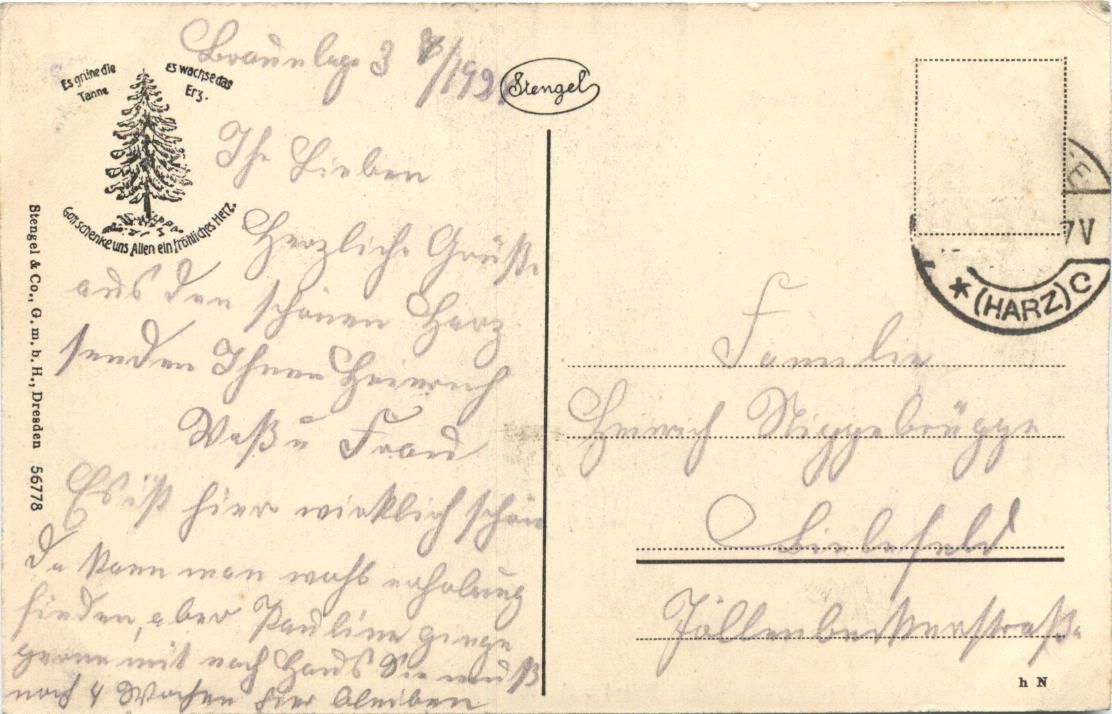 Braunlage 3 /192
Es grüne die
Tanne
Es wachse das
Erz.
Gott schenke uns Allen ein fröhliches Herz.
Stengel
Ihr Lieben
Herzliche Grüße
aus den schönen Harz
senden Ihnen Heinrich
u Frau
Es ist hier wirklich schön
da kann man wohl erholung
finden, aber Pauline ginge
gerne mit nach Haus Sie muß
noch 4 Wochen hier bleiben
Stengel & Co., G. m. b. H., Dresden 56778
7V
* (HARZ) C
Familie
Heinrich Niggebrügge
Bielefeld
Jöllenbeckerstraße
h N